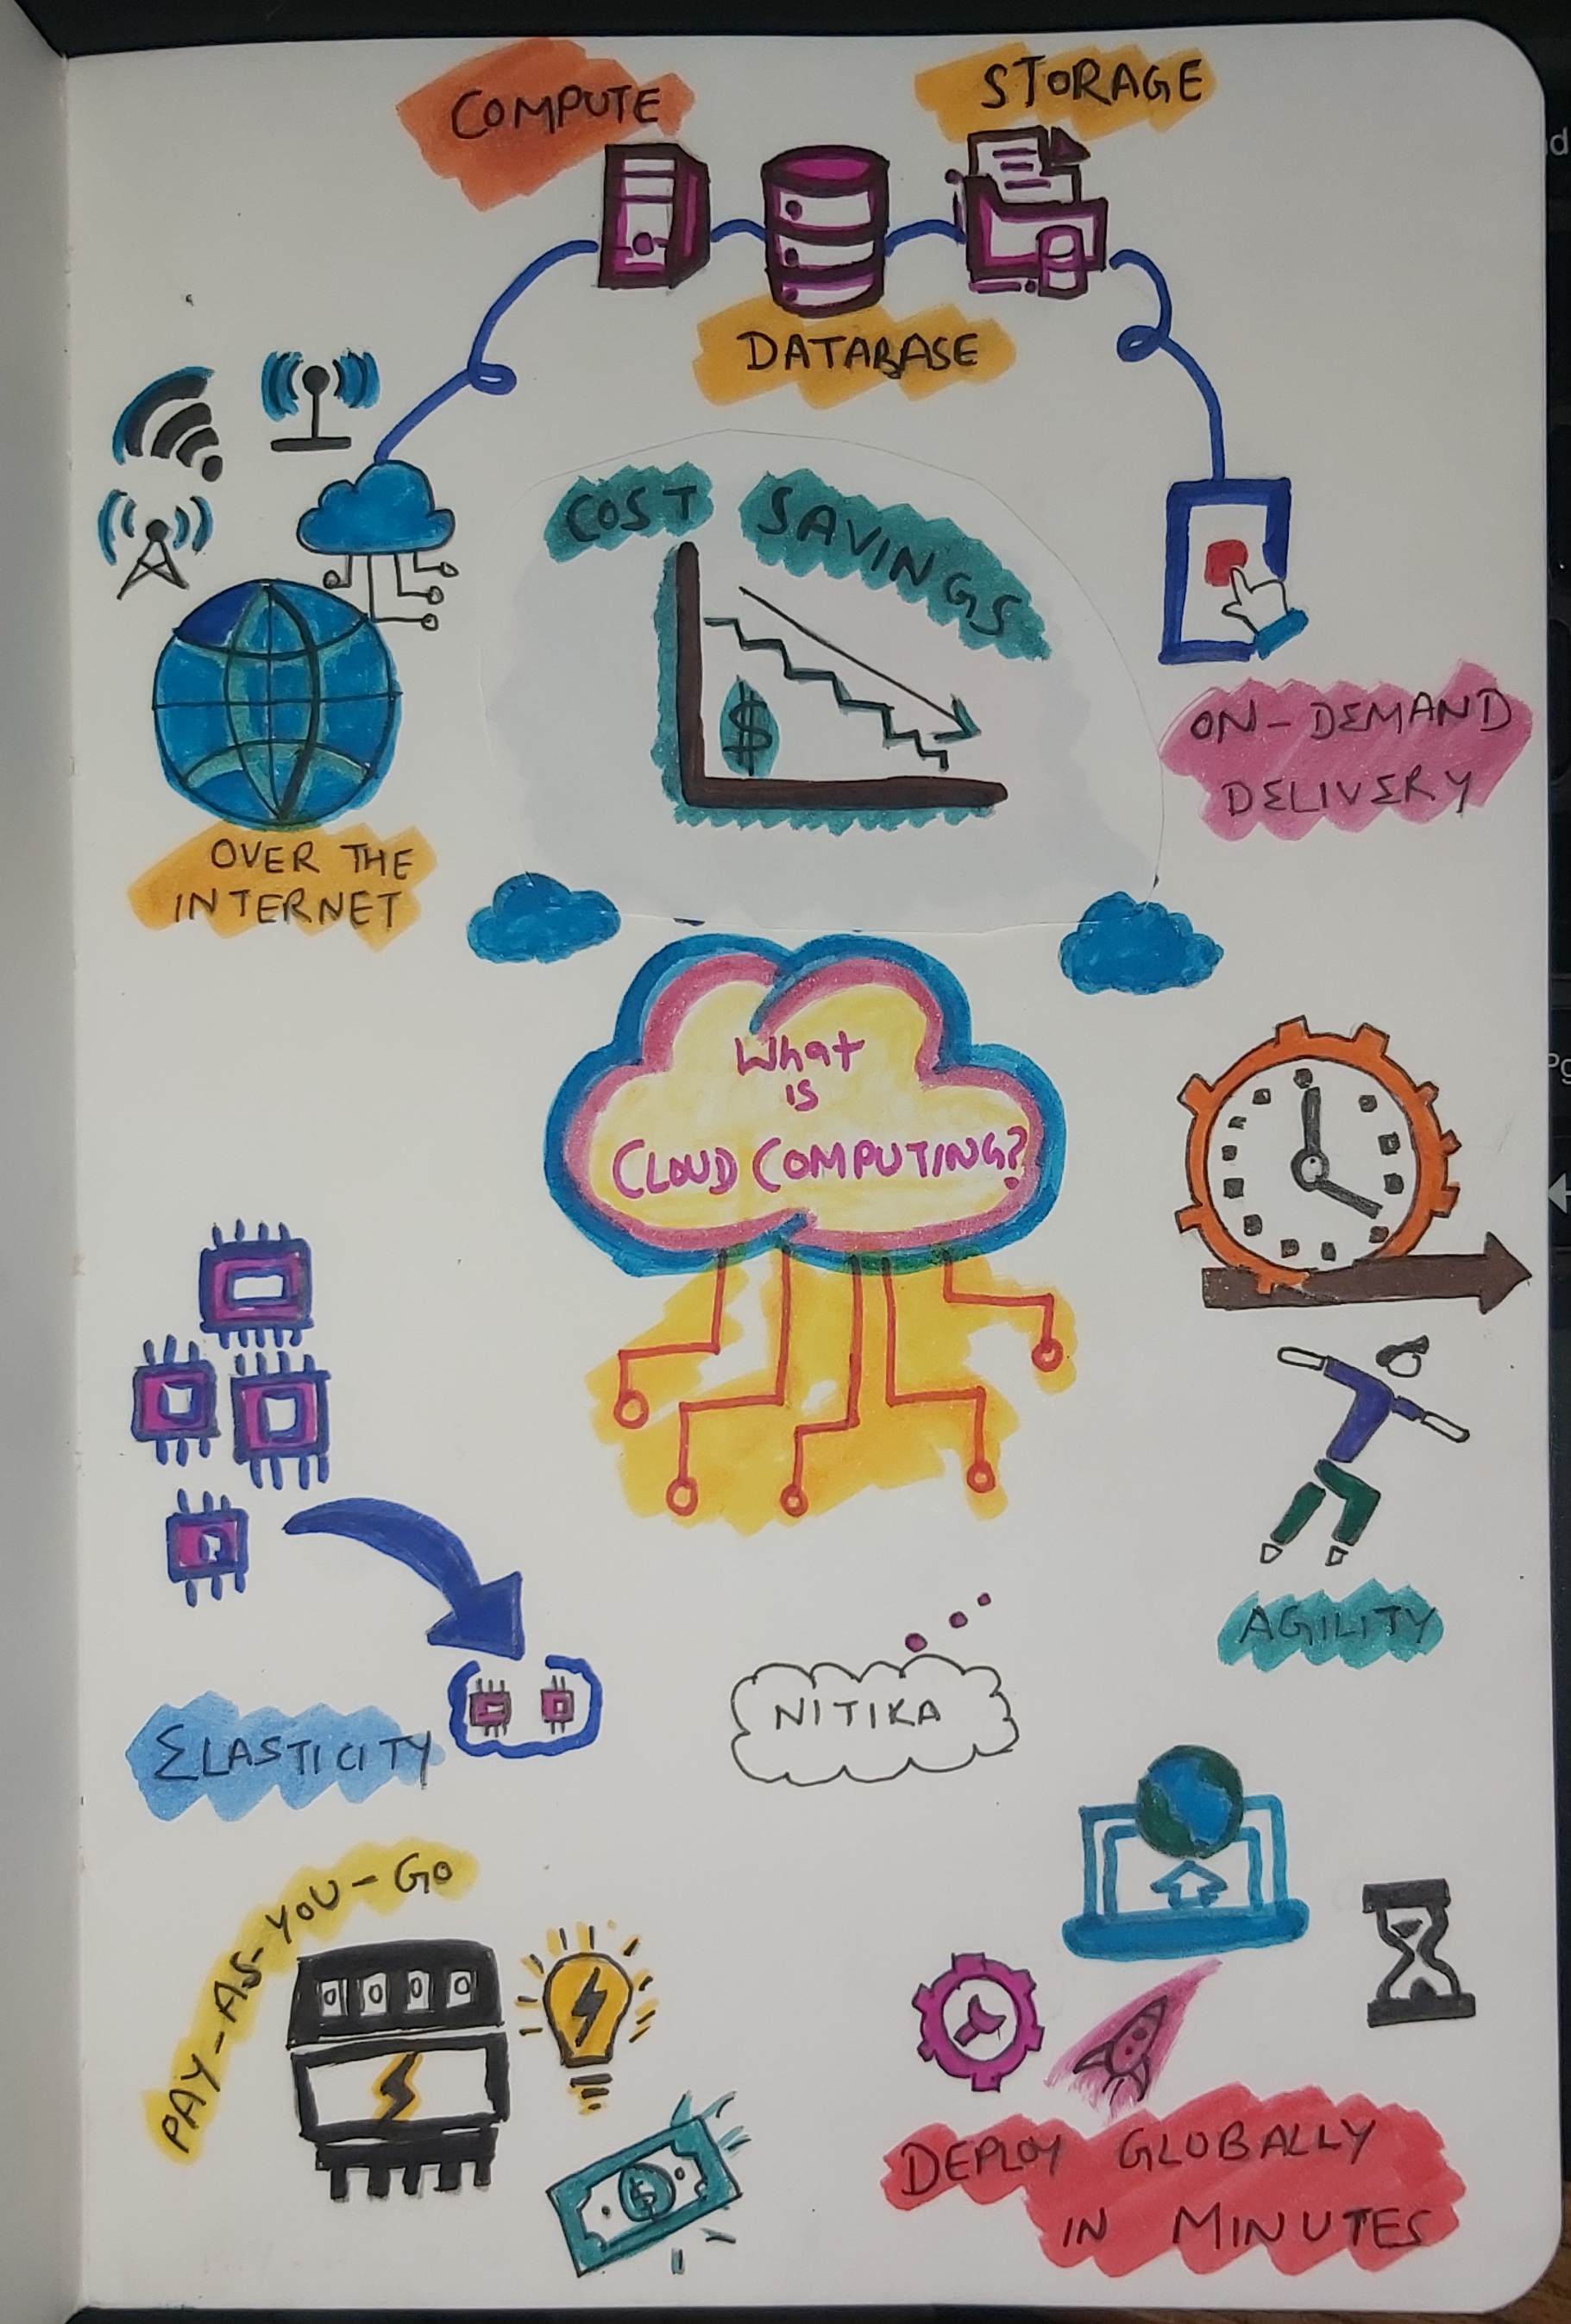 COMPUTE
STORAGE
DATABASE
COST SAVINGS
$
ON-DEMAND
DELIVERY
OVER THE
INTERNET
What
is
CLOUD COMPUTING?
AGILITY
NITIKA
ELASTICITY
PAY-AS-YOU-GO
0 0 0 0
$
DEPLOY GLOBALLY
IN MINUTES
d
Pg